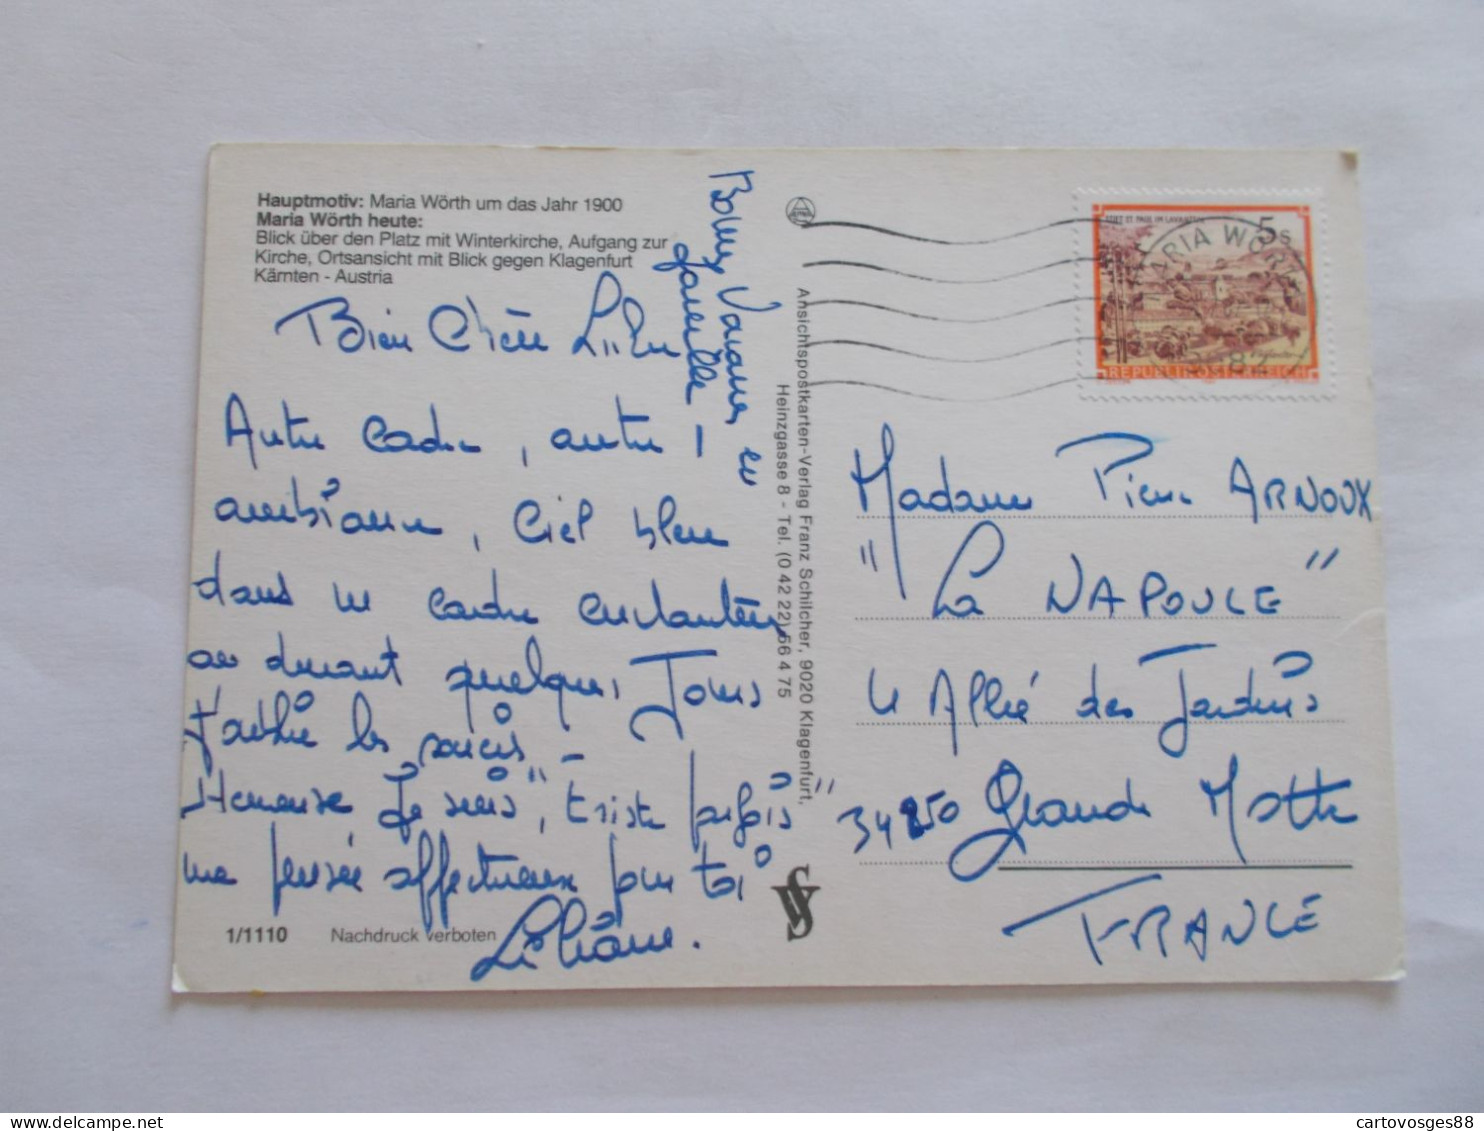 Hauptmotiv: Maria Wörth um das Jahr 1900
Maria Wörth heute:
Blick über den Platz mit Winterkirche, Aufgang zur
Kirche, Ortsansicht mit Blick gegen Klagenfurt
Kärnten - Austria
Bien Chère
Autre cadre, autre
ambiance, Ciel bleu
dans un cadre enchanteur
durant quelques Jours
J'oublie les soucis -
Heureuse je suis, "triste parfois"
une pensée affectueuse pour toi
Liliane.
Bonnes Vacances en
famille
1/1110 Nachdruck verboten
Ansichtspostkarten-Verlag Franz Schilcher, 9020 Klagenfurt,
Heinzgasse 8 - Tel. (0 42 22) 56 4 75
STIFT ST. PAUL IM LAVANTTAL
5s
MARIA WÖRTH
REPUBLIK ÖSTERREICH
Madame Pierre ARNOUX
"La NAPOULE"
4 Allée des Jardins
34250 Grande Motte
FRANCE
cartovosges88